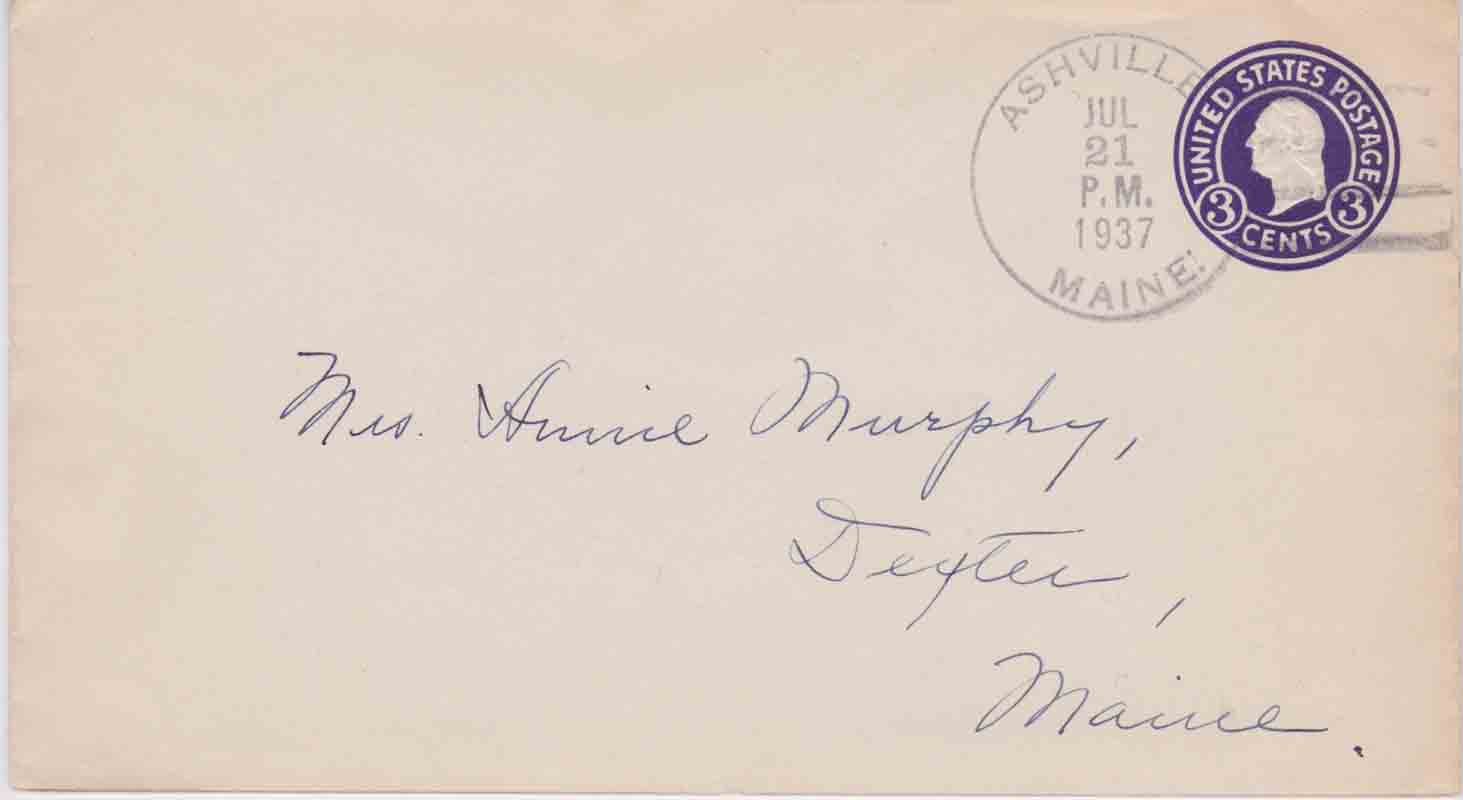 ASHVILLE
JUL
21
P.M.
1937
MAINE.
UNITED STATES POSTAGE
3 CENTS 3
Mrs. Annie Murphy,
Dexter,
Maine.